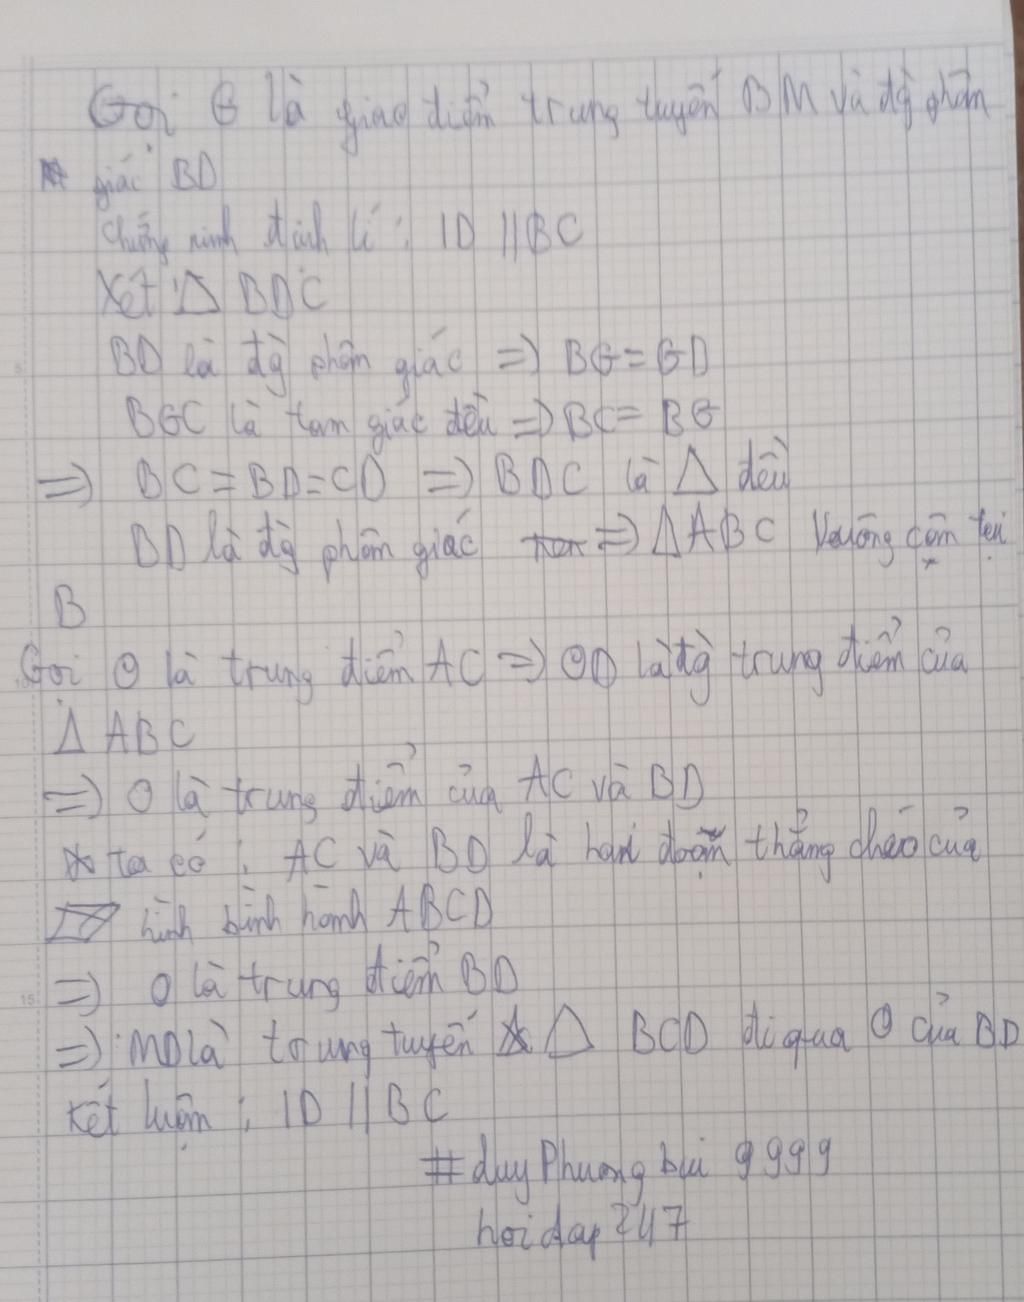 Gọi G là giao điểm trung tuyến BM và đg phân
giác BD
Chứng minh định lí : ID // BC
Xét Δ BDC
BD là đg phân giác => BG = GD
BGC là tam giác đều => BC = BG
=> BC = BD = CD => BDC là Δ đều
BD là đg phân giác => Δ ABC vuông cân tại
B
Gọi O là trung điểm AC => OD là đg trung điểm của
Δ ABC
=> O là trung điểm của AC và BD
* ta có : AC và BD là hai đoạn thẳng chéo của
▱ hình bình hành ABCD
=> O là trung điểm BD
=> MD là trung tuyến Δ BCD đi qua O của BD
Kết luận : ID // BC
# duy Phuong bui 9999
hoidap247